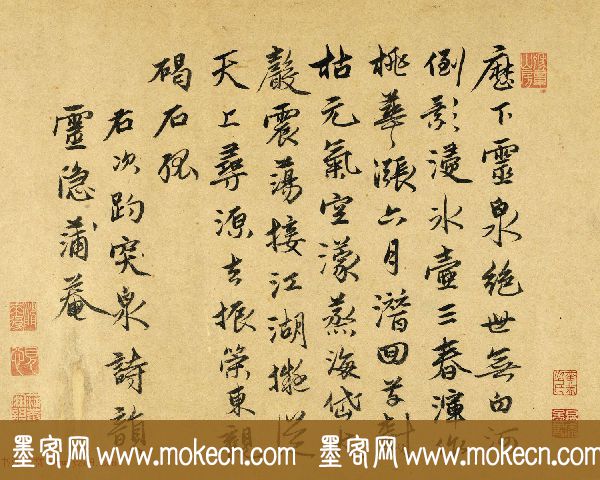 歷下靈泉絕世無白河
倒影浸冰壺三春渾作
桃華漲六月潛回草樹
枯元氣空濛蒸海岱
聲震蕩接江湖擬從
天上尋源去振策東觀
碣石孤
右次趵突泉詩韻
靈隱蒲菴
墨客网 www.mokecn.com 墨客网 www.mokecn.com